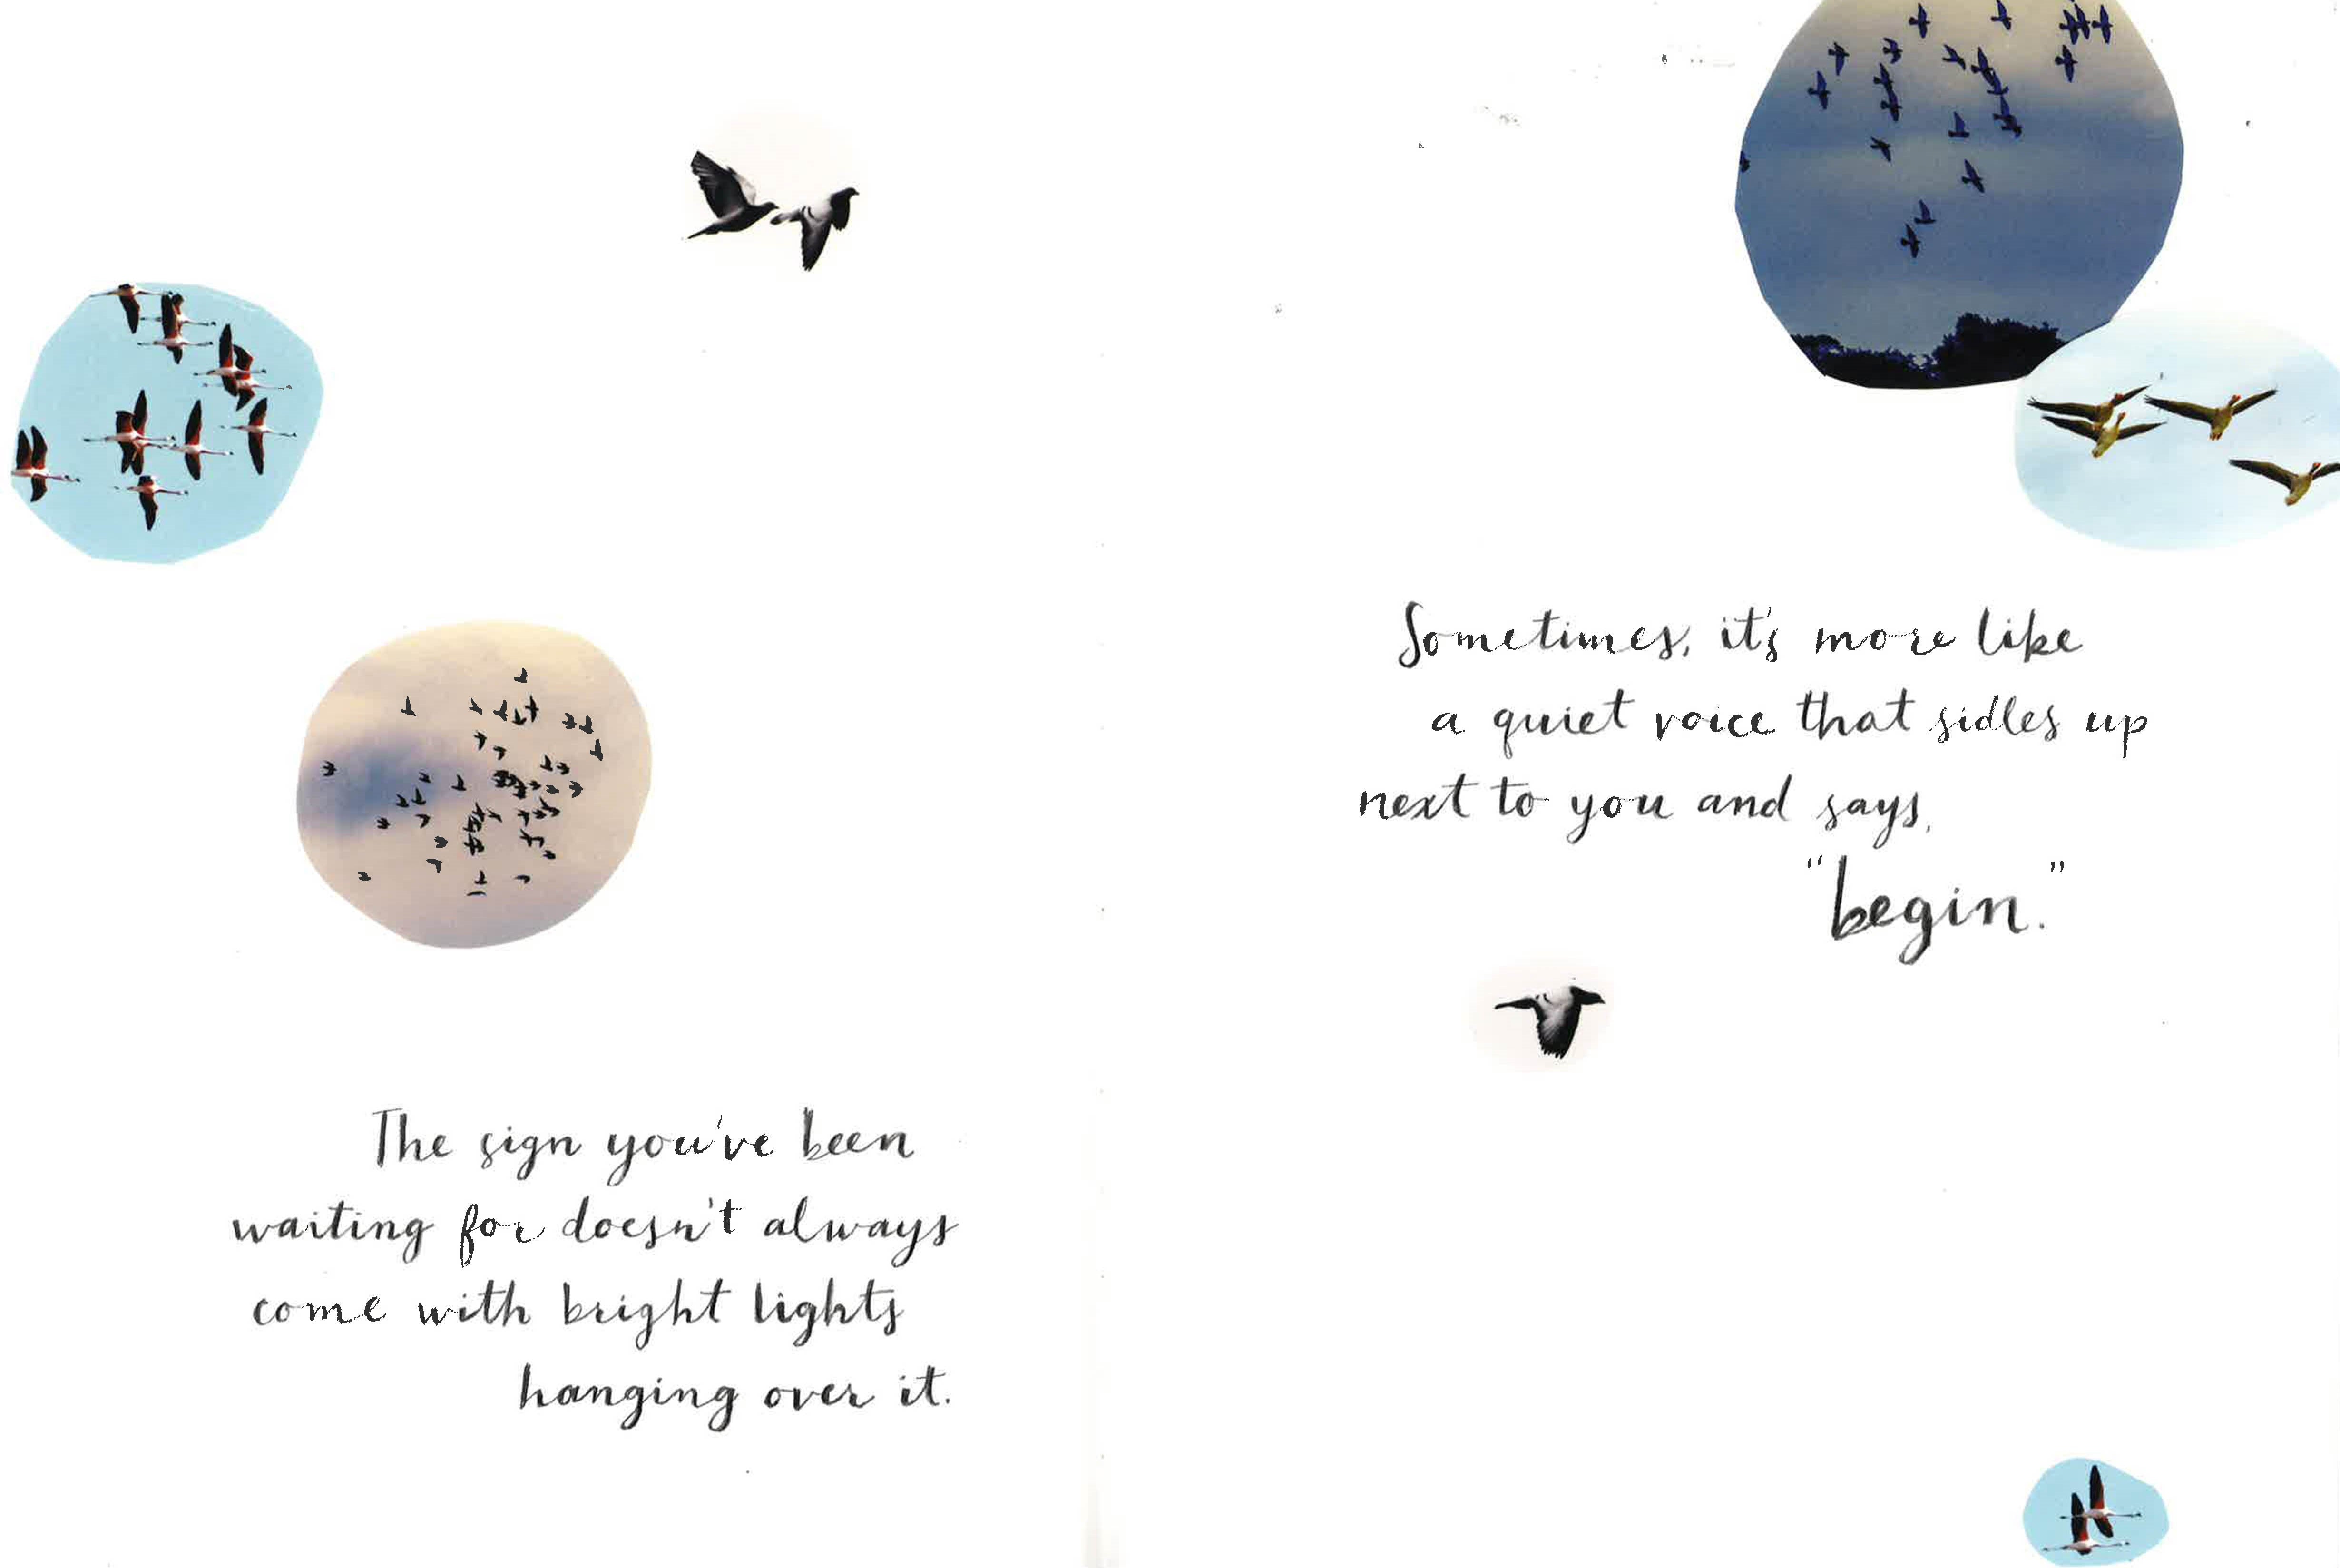 The sign you've been
waiting for doesn't always
come with bright lights
hanging over it.
Sometimes, it's more like
a quiet voice that sidles up
next to you and says,
"begin."